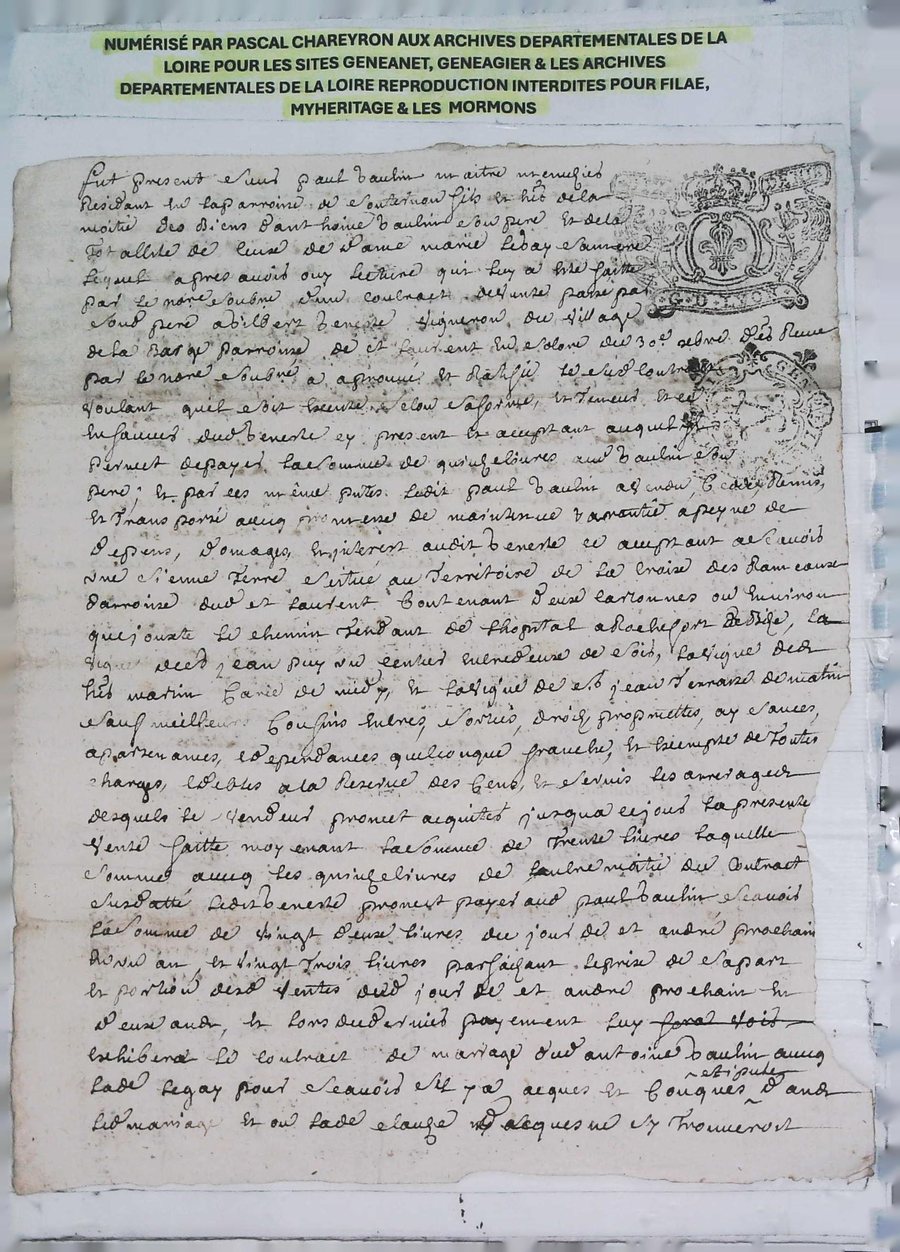 NUMÉRISÉ PAR PASCAL CHAREYRON AUX ARCHIVES DEPARTEMENTALES DE LA
LOIRE POUR LES SITES GENEANET, GENEAGIER & LES ARCHIVES
DEPARTEMENTALES DE LA LOIRE REPRODUCTION INTERDITES POUR FILAE,
MYHERITAGE & LES MORMONS
fut present sieur paul vaulin maitre
Residant en la parroisse de Souternon fils et her de la
moitié des biens d'anthoine vaulin son pere et de la
Totallité de ceux de dame marie Legay sa mere
Lequel apres avoir ouy lecture qui luy a esté faitte
par le nore soubné d'un contract de vente passé par
G·D·LYON
sond pere a vigneron du village
de la Barge parroisse de st laurent du 30e Receu
par le nore soubné a aprouvé et Ratifié le susd contract
voulant quil soit executé selon sa forme, et Teneur et ce
GENE
en faveur dud beneste cy present et acceptant auquel
permet de payer la somme de quinze livres aud vaulin son
pere; et par ces même ptes ledit paul vaulin a vendu, Cedé, Remis,
et Transporté avecq promesse de maintenue Garantie a peyne de
depens, domages, et interest audit beneste ce acceptant a scavoir
une sienne Terre scitué au Territoire de la Croise des Rameaux
parroisse dud st laurent, Contenant deux cartonnes ou environ
que jouxte le chemin Tendant de lhopital a Rochefort de bize, La
vigne jean puy un sentier entredeux de soir, la vigne
hers martin de midy, et la vigne de jean Terrasse de matin
sauf meilleurs Confins entrées, sorties, droits, proprietés, aysances,
apartenances, et dependances quelconque franche, et exempte de Toutes
charges, et debtes a la Reserve des Cens, et servis les arrerages
desquels le vendeur promet acquitér jusqua ce jour la presente
vente faitte moyenant la somme de Trente livres laquelle
somme avecq les quinze livres de laultre moitié du contract
susdatté ledit beneste promet payer aud paul vaulin scavoir
la somme de vingt deux livres du jour de st andré prochain
en un an, et vingt Trois livres parfaisant le prix de sa part
et portion desd ventes dud jour de st andré prochain en
deux ans, et lors du dernier payement luy
exhibera le contract de mariage dud antoine vaulin avecq
stipulez
lade Legay pour scavoir sil y a acques et Conques dans
led mariage et ou lade clause acques ne sy Trouveroit